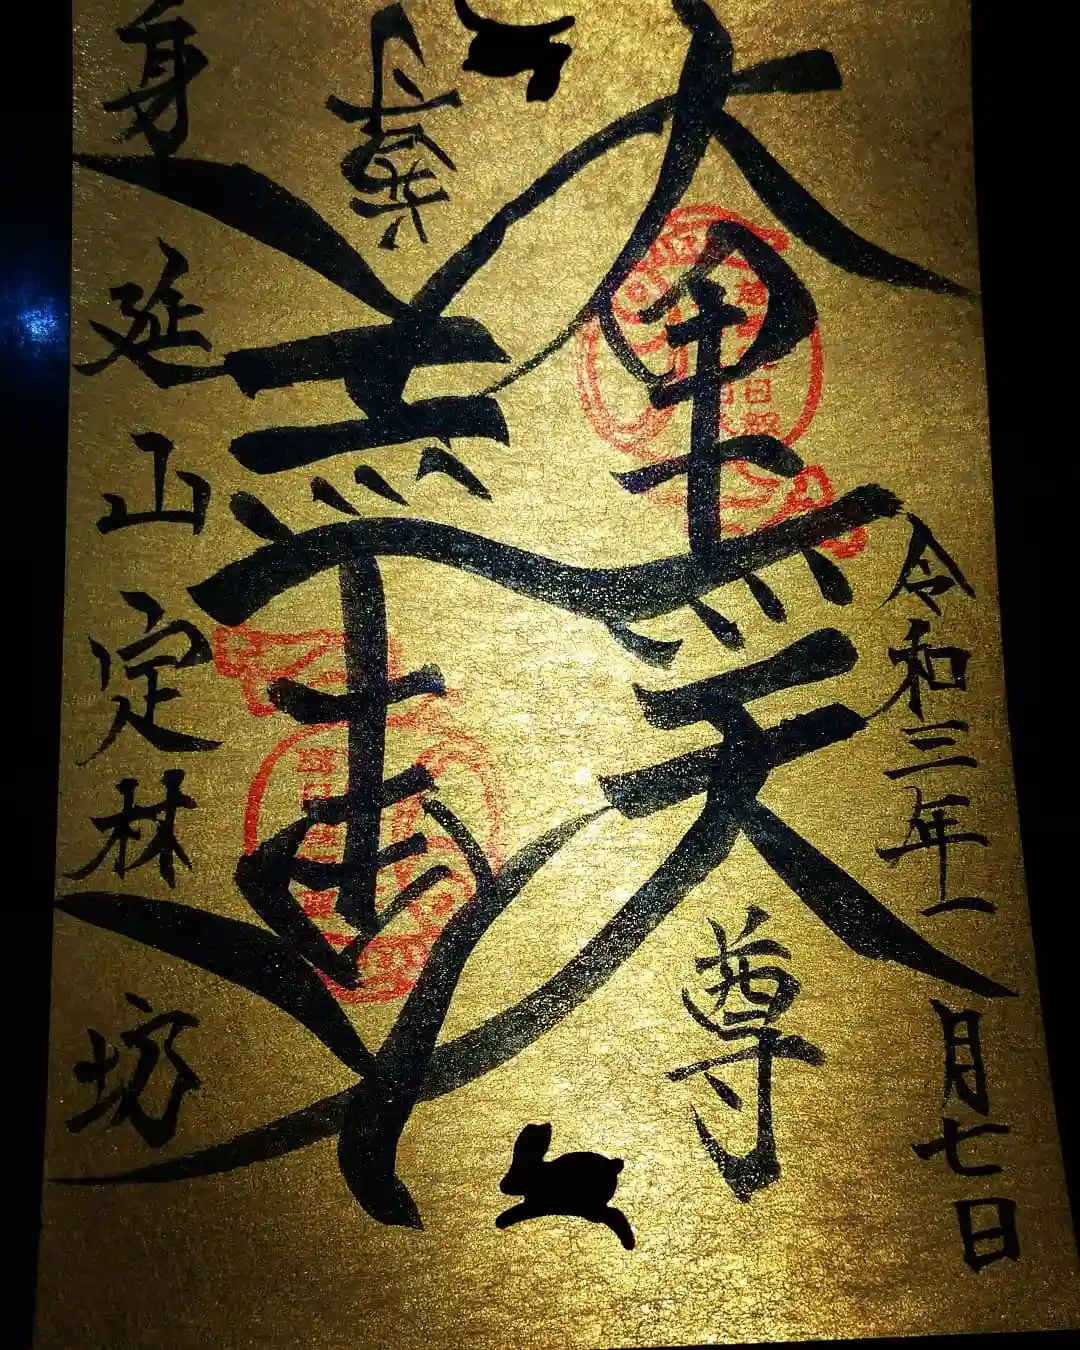 令和三年一月七日
大黒天尊
大黒天尊
身延山定林坊